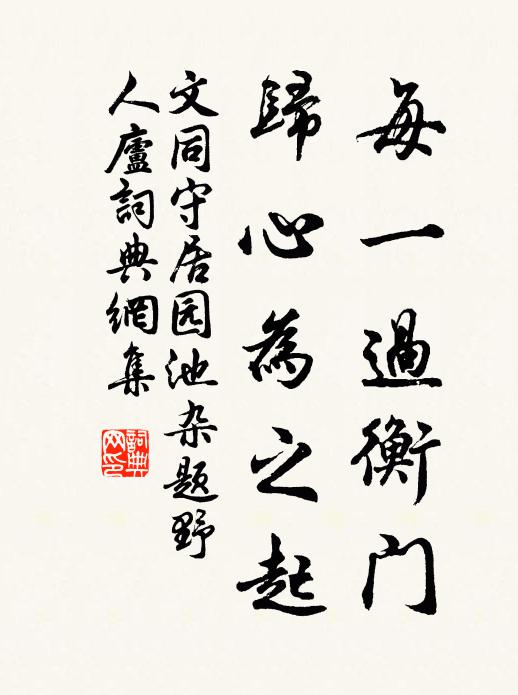 每一過衡门
歸心為之起
文同守居园池杂题野
人廬詞典網集
詞典网印